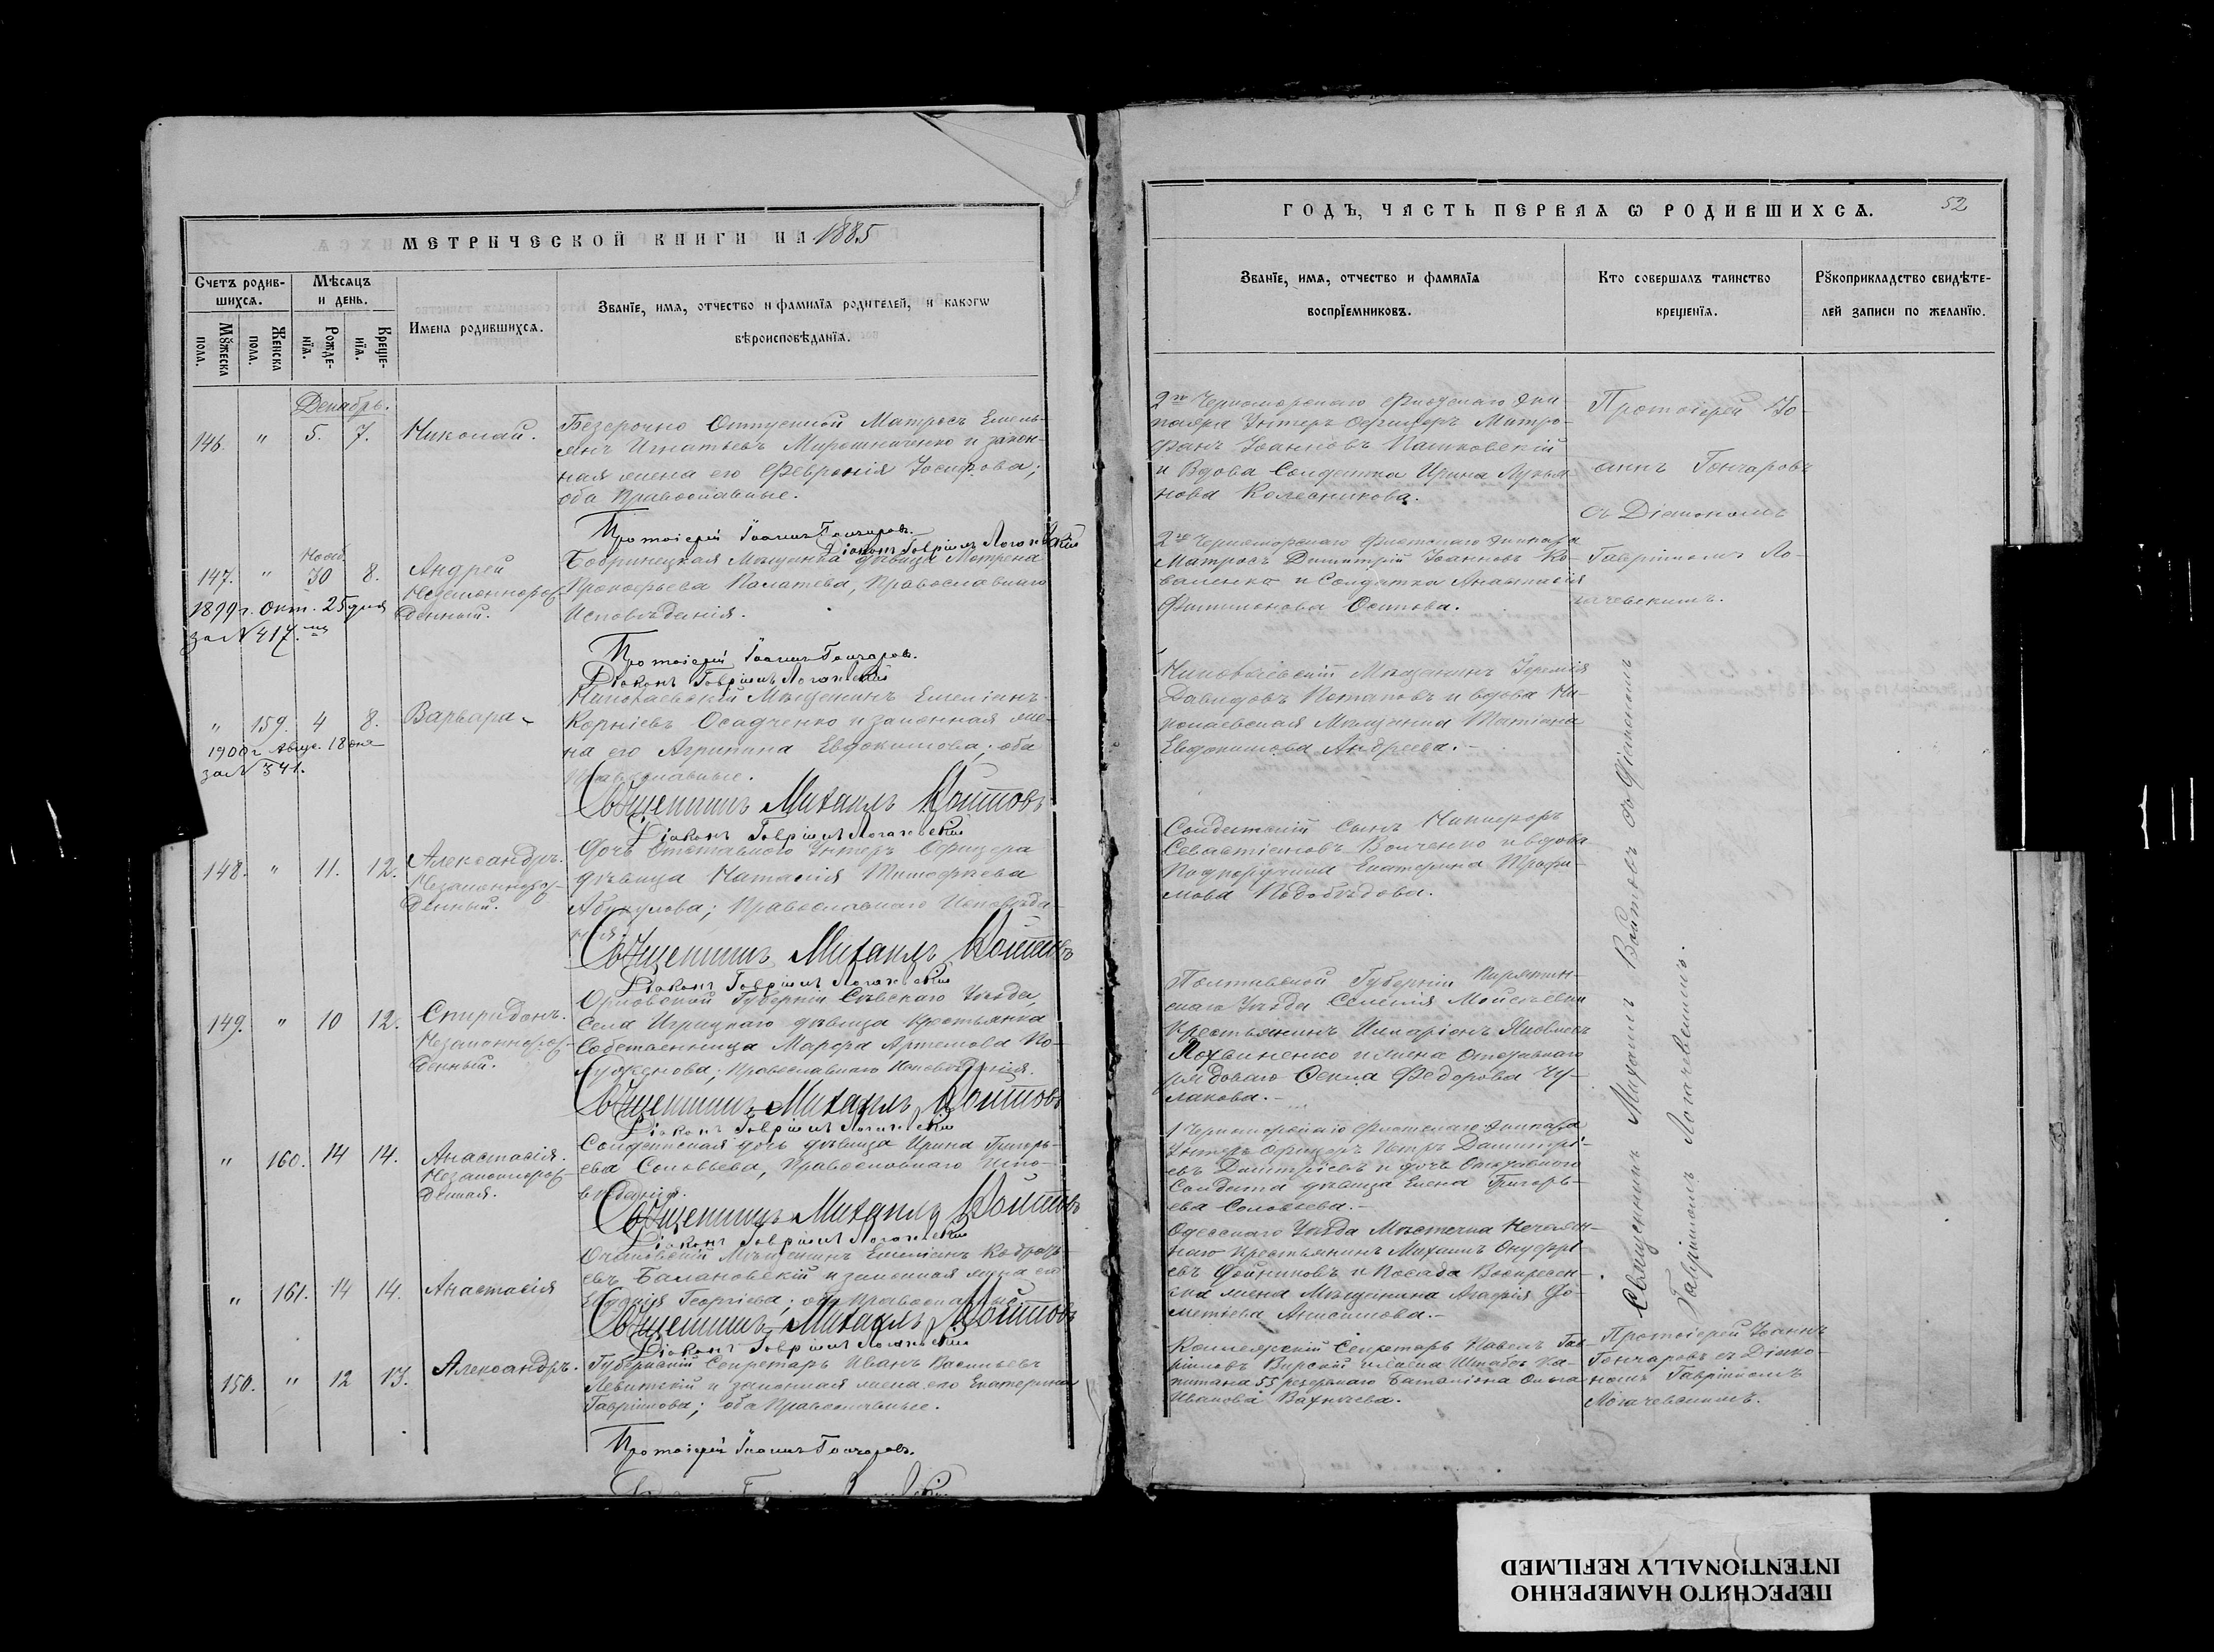 МЕТРИЧЕСКОЙ КНИГИ НА 1885
Счетъ родив-
шихсѧ.
Мѣсѧцъ
и день.
Мꙋжеска
пола.
Женска
пола.
Рожде-
нїѧ.
Креще-
нїѧ.
Имена родившихсѧ.
Званїе, имѧ, отчество и фамилїѧ родителей, и какогѡ
вѣроисповѣданїѧ.
Декабрь.
146. " 5. 7. Николай.
Безсрочно Отпускной Матросъ Емель-
янъ Игнатьевъ Мирошниченко и закон-
ная жена его Февронія Іосифова;
оба Православные.
Протоіерей Іоаннъ Гончаровъ.
Діаконъ Гавріилъ Логачевскій
147. " Нояб. 30 8. Андрей
Незаконнорож-
денный.
1899 г. Окт. 25 дня
за № 417.
Бобринецкая Мѣщанка дѣвица Матрена
Прокофьева Палатева, Православнаго
Исповѣданія.
Протоіерей Іоаннъ Гончаровъ.
Діаконъ Гавріилъ Логачевскій
" 159. 4 8. Варвара
1900 г. Авгус. 18 дня
за № 341.
Николаевскій Мѣщанинъ Емеліанъ
Корніевъ Осадченко и законная же-
на его Агрипина Евдокимова; оба
Православные.
Священникъ Михаилъ Войтовъ
Діаконъ Гавріилъ Логачевскій
148. " 11. 12. Александръ.
Незаконнорож-
денный.
Дочь Отставного Унтеръ Офицера
дѣвица Наталія Тимофѣева
Православнаго Исповѣда-
нія.
Священникъ Михаилъ Войтовъ
Діаконъ Гавріилъ Логачевскій
149. " 10 12. Спиридонъ.
Незаконнорож-
денный.
Орловской Губерніи Сѣвскаго Уѣзда,
Села Игрицкаго дѣвица Крестьянка
Собственница Марфа Артемова По-
Православнаго Исповѣданія.
Священникъ Михаилъ Войтовъ
Діаконъ Гавріилъ Логачевскій
" 160. 14 14. Анастасія.
Незаконнорож-
денная.
Солдатская дочь дѣвица Ирина Григорь-
ева Соловьева, Православнаго Испо-
вѣданія.
Священникъ Михаилъ Войтовъ
Діаконъ Гавріилъ Логачевскій
" 161. 14 14. Анастасія
Очаковскій Мѣщанинъ Емеліанъ
евъ Балановскій и законная жена его
Георгіева; оба Православные
Священникъ Михаилъ Войтовъ
Діаконъ Гавріилъ Логачевскій
150. " 12 13. Александръ.
Губернскій Секретарь Иванъ Васильевъ
Левитскій и законная жена его Екатерина
Гавріилова; оба Православные.
Протоіерей Іоаннъ Гончаровъ.
ГОДЪ, ЧАСТЬ ПЕРВАѦ Ѡ РОДИВШИХСѦ.
52
Званїе, имѧ, отчество и фамилїѧ
воспрїемниковъ.
Кто совершалъ таинство
крещенїѧ.
Рꙋкоприкладство свидѣте-
лей записи по желанїю.
2го Черноморскаго Флотскаго Эки-
пажа Унтеръ Офицеръ Митро-
фанъ Іоанновъ Пашковскій
и Вдова Солдатка Ирина Лукья-
нова Колесникова.
Протоіерей Іо-
аннъ Гончаровъ
съ Діакономъ
Гавріиломъ Ло-
гачевскимъ.
2го Черноморскаго Флотскаго Экипажа
Матросъ Димитрій Іоанновъ Ко-
валенко и Солдатка Анастасія
Филимонова Осипова.
Николаевскій Мѣщанинъ Іеремія
Давидовъ Потаповъ и вдова Ни-
колаевская Мѣщанка Татіана
Евдокимова Андреева.
Солдатскій Сынъ Никифоръ
Севастіановъ Волченко и вдова
Подпоручица Екатерина Трофи-
мова Подобѣдова.
Священникъ Михаилъ Войтовъ съ Діакономъ
Гавріиломъ Логачевскимъ.
Полтавской Губерніи Пирятин-
скаго Уѣзда Селенія Мойсѣевки
Крестьянинъ Иларіонъ Яковлевъ
Логвиненко и жена Отставнаго
рядоваго Ѳекла Федорова Чу-
лакова.
1 Черноморскаго Флотскаго Экипажа
Унтеръ Офицеръ Петръ Димитрі-
евъ Дмитріевъ и дочь Отставного
Солдата дѣвица Елена Григорь-
ева Соловьева.
Одесскаго Уѣзда Мѣстечка Нечаян-
наго Крестьянинъ Михаилъ Онуфрі-
евъ Дойниковъ и Посада Воскресен-
ска жена Мѣщанина Агафія До-
метіева Анисимова.
Коллежскій Секретарь Павелъ Гав-
ріиловъ Вирскій и жена Штабсъ Ка-
питана 55 резервнаго Баталіона Ольга
Иванова
Протоіерей Іоаннъ
Гончаровъ съ Діако-
номъ Гавріиломъ
Логачевскимъ.
ПЕРЕСНЯТО НАМЕРЕННО
INTENTIONALLY REFILMED